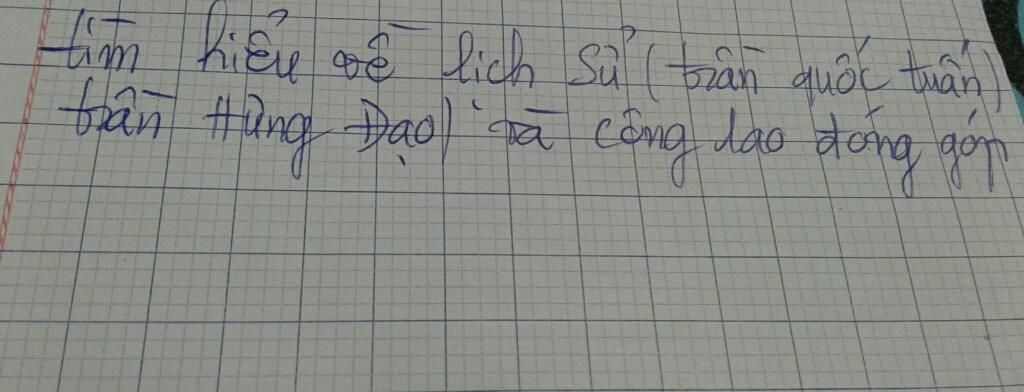 tìm hiểu về lich Sử (trần quốc tuấn)
trần Hưng Đạo) và công lao đóng góp